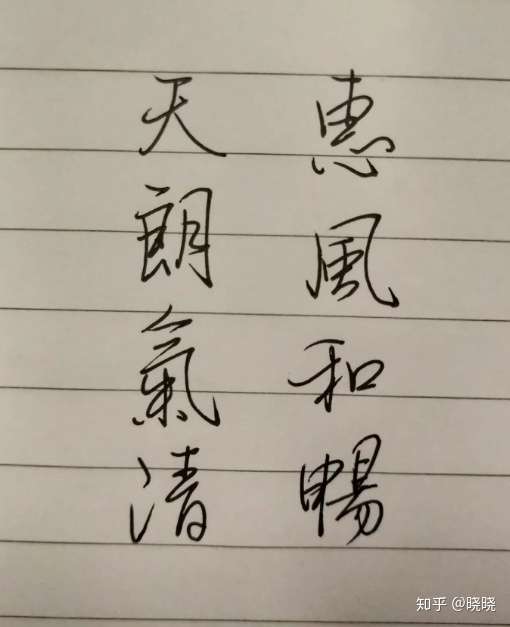 惠風和暢
天朗氣清
知乎 @晓晓